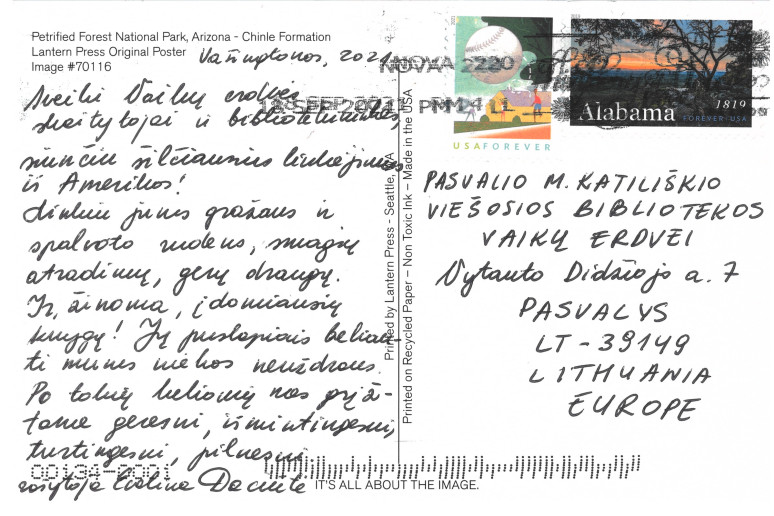 Petrified Forest National Park, Arizona - Chinle Formation
Lantern Press Original Poster
Image #70116
Vašingtonas, 2021
Sveiki Vaikų erdvės
skaitytojai ir bibliotekininkės,
siunčiu šilčiausius linkėjimus
iš Amerikos!
Linkiu jums gražaus ir
spalvoto rudens, smagių
atradimų, gerų draugų.
Ir, žinoma, įdomiausių
knygų! Jų puslapiais keliau-
ti mums niekas neuždraus.
Po tokių kelionių mes grįž-
tame geresni, išmintingesni,
turtingesni, pilnesni
rašytoja Evelina Daciūtė
00134-0001
IT'S ALL ABOUT THE IMAGE.
Printed by Lantern Press - Seattle, WA
Printed on Recycled Paper – Non Toxic Ink – Made in the USA
NOVA 220
18 SEP 2021 PM
USA FOREVER
Alabama 1819
FOREVER USA
PASVALIO M. KATILIŠKIO
VIEŠOSIOS BIBLIOTEKOS
VAIKŲ ERDVEI
Vytauto Didžiojo a. 7
PASVALYS
LT - 39149
LITHUANIA
EUROPE